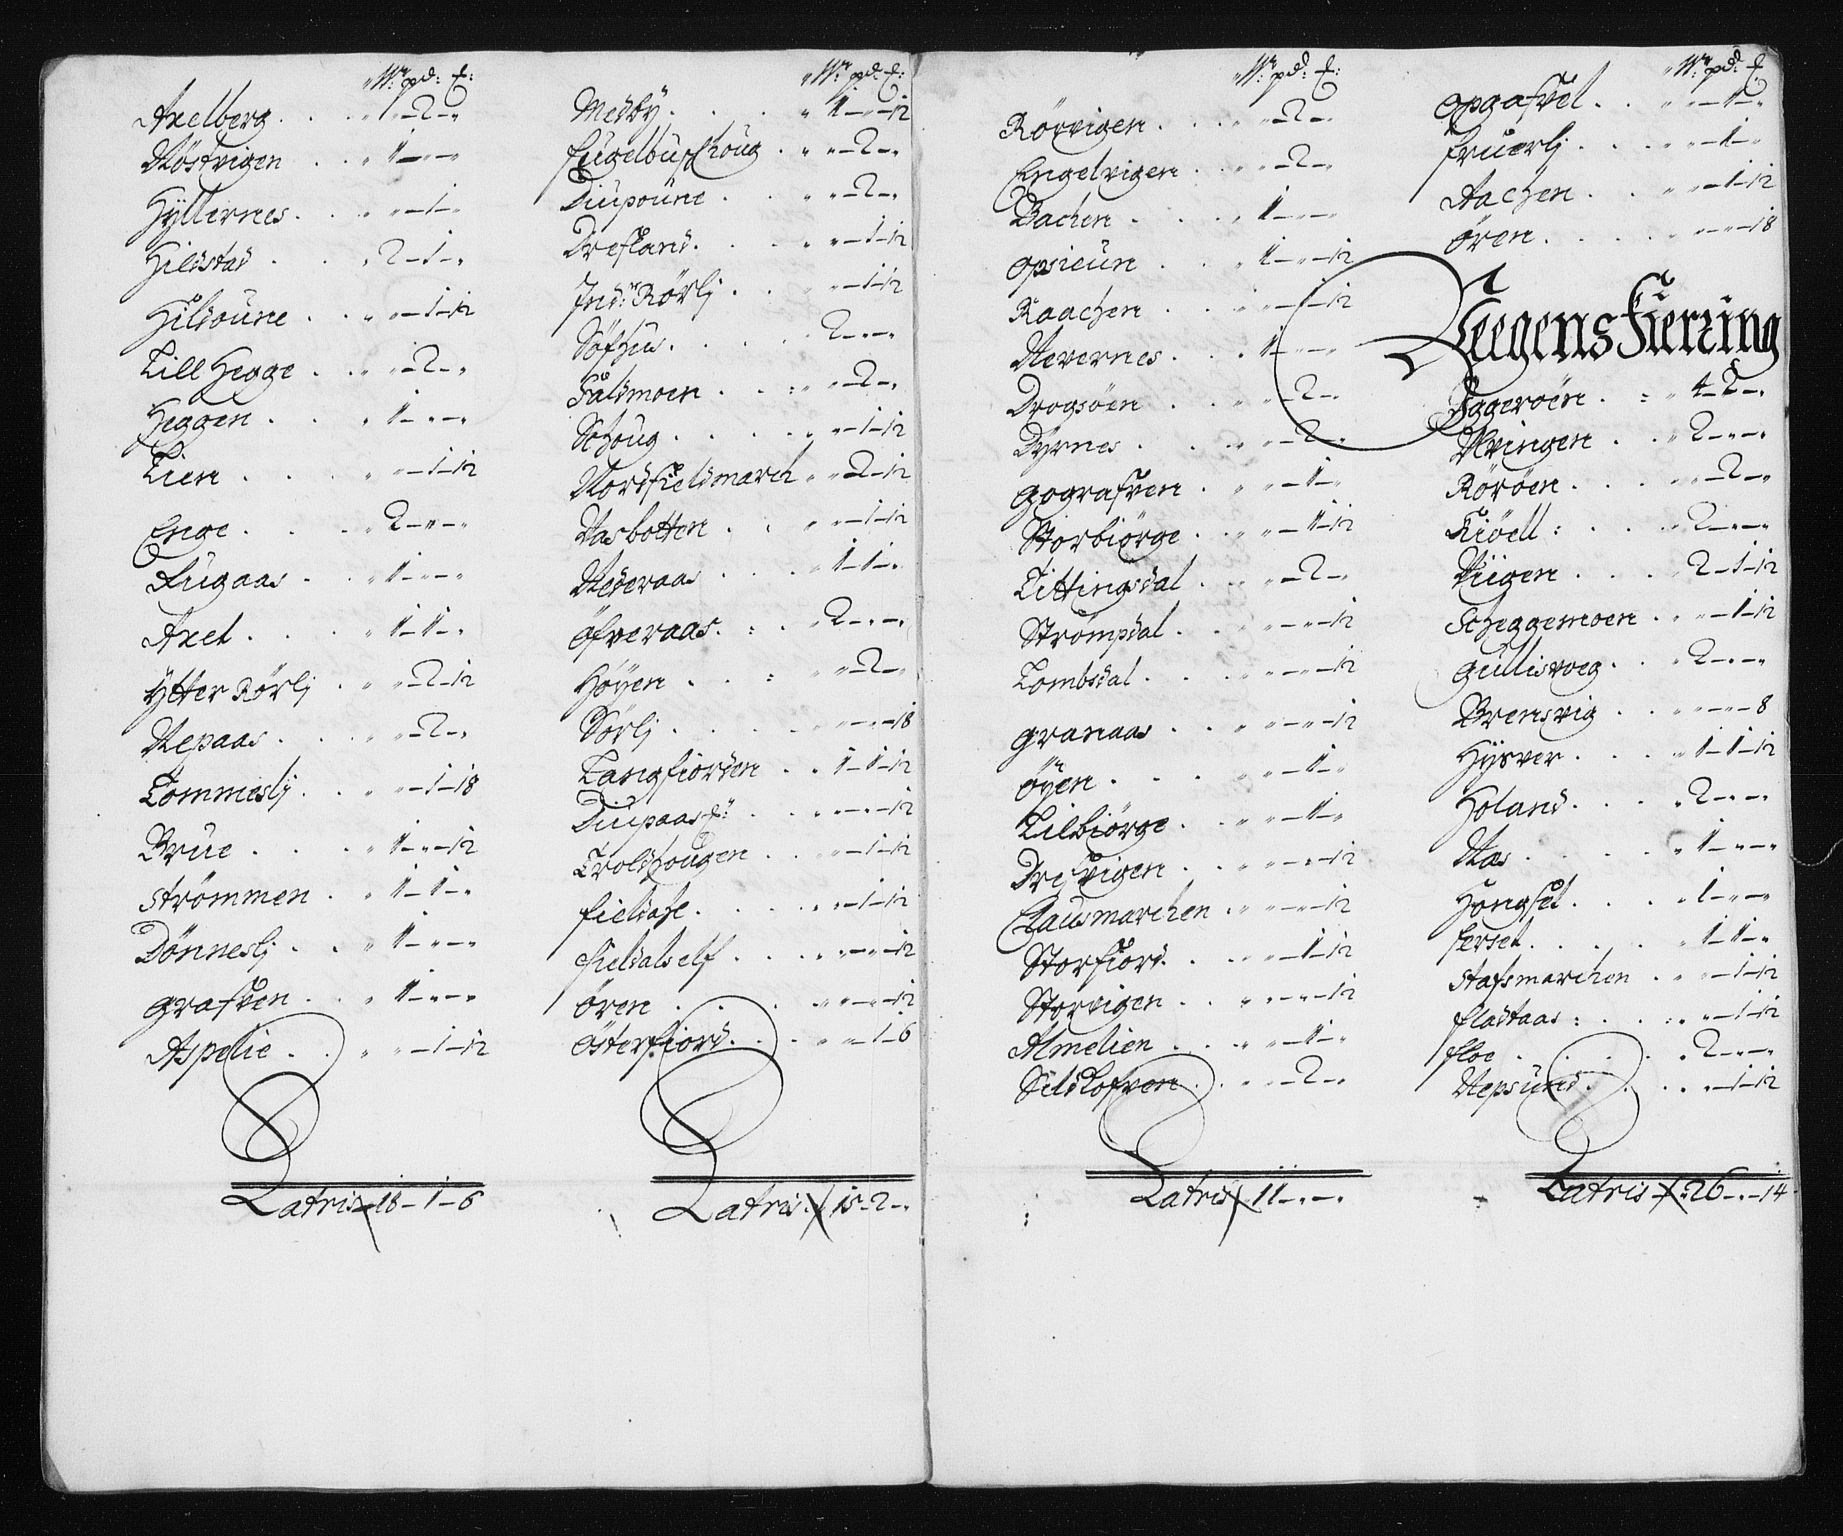 W: pd: £:
Axelberg . . . „ „ – 2 – „
Møstvigen . . „ 1 – „ – „
Hyllernes . . . „ „ – 1 – „
Hildstad . . . „ 2 – 1 – „
Hildoune . . . „ „ – 1 – 12
Lill Hegge . . „ „ – 2 – „
Heggen . . . „ 1 – „ – „
Lien . . . „ „ – 1 – 12
Enge . . . „ 2 – „ – „
Augaas . . „ 1 – „ – „
Axel . . . „ 1 – 1 – „
Ytter Rørlj . „ „ – 2 – 12
Nepaas . . . „ „ – 2 – „
Tommeslj . . „ „ – 1 – 18
Brue . . . „ 1 – „ – 12
Strømmen . „ 1 – 1 – „
Dønneslj . . „ 1 – „ – „
Grafven . . „ 1 – „ – „
Aspelie . . „ „ – 1 – 12
Latris 18 – 1 – 6
W: pd: £:
Mesby . . . „ 1 – „ – 12
Fugelbuschoug . „ „ – 2 – „
Diupoune . . „ „ – 2 – „
Drefland . . . „ „ – 1 – 12
Ind: Rørlj . . „ – 1 – 12
Søfhu . . . . 2 – „ – „
Faldmoen . . : „ „ – 2 – „
Schoug . . . . „ „ – 1 – 12
Nordfieldmarch „ „ – 2 – 12
Nasbotten . . „ „ – 1 – 12
Nederaas . . . 1 – 1 – „
Øfveraas . : . „ 2 – „ – „
Høyen . . : „ „ – 2 – „
Sørlj . . . . „ „ – „ – 18
Langfiorden . . 1 – 1 – 12
Diupaas £: . . „ „ – „ – 12
Troldhougen . . „ „ – 1 – 12
Fieldahl . . . „ „ – 1 – 12
Fieldalself . . . „ „ – „ – 12
Øren . . . „ „ – „ – 12
Østerfiord . . . „ „ – 1 – 6
Latris 15 – 2 – „
W: pd: £:
Rørvigen . . . „ „ – 2 – „
Engelvigen . . „ „ – 2 – „
Bachen . . . „ 1 – „ – „
Opsieun . . . „ 1 – „ – 12
Raachen . . . „ „ – „ – 12
Nevernes . . . 1 – „ – „
Drogsøen . . „ „ – 2 – „
Dyrnes . . . „ „ – 2 – „
Gografven . „ „ – 1 – „
Storbiørge . „ „ – 1 – 12
Littingsdal . „ „ – 2 – „
Strømpdal . . „ „ – „ – 12
Lombsdal . . . „ „ – „ – 12
Granaas . . „ „ – „ – 12
Øyen . . . . „ „ – 1 – „
Lilbiørge . . „ „ – 1 – „
Drefvigen . . „ „ – „ – 12
Clausmarchen . „ „ – „ – 12
Storfiord . . . „ „ – 1 – 12
Storvigen . . „ „ – „ – 12
Almelien . . . „ „ – 1 – „
Sildhofven . . „ „ – 2 – „
Latris 11 – „ – „
W: pd: £
Opgafvel . . „ „ – 1 – „
Fruerlj . . . „ „ – 1 – „
Aachen . . „ „ – 1 – 12
Øren . . . . „ „ – „ – 18
Veegens Fierring
Eggerøen . : „ 4 – 2 – „
Qvingen . . „ 2 – „ – „
Rørøen . . . „ „ – 2 – „
Kiøell : . . „ 2 – „ – „
Viigen . . . „ 2 – 1 – 12
Scheggemoen . „ „ – 1 – 12
Gullisvoeg . . „ 2 – „ – „
Brensvig . . „ „ – „ – 8
Hysver . . . „ 1 – 1 – 12
Holand . . . „ 2 – „ – „
Nas . . . . . „ 1 – „ – „
Hongset . . . „ 1 – „ – „
Ferset . . . . „ 1 – 1 – „
Stafsmarchen . „ „ – 1 – 12
Fladtaas : . . : „ „ – 1 – 12
Floe . . . . „ 2 – „ – „
Nepsund . . . „ „ – 1 – 12
Latris 26 – „ – 14